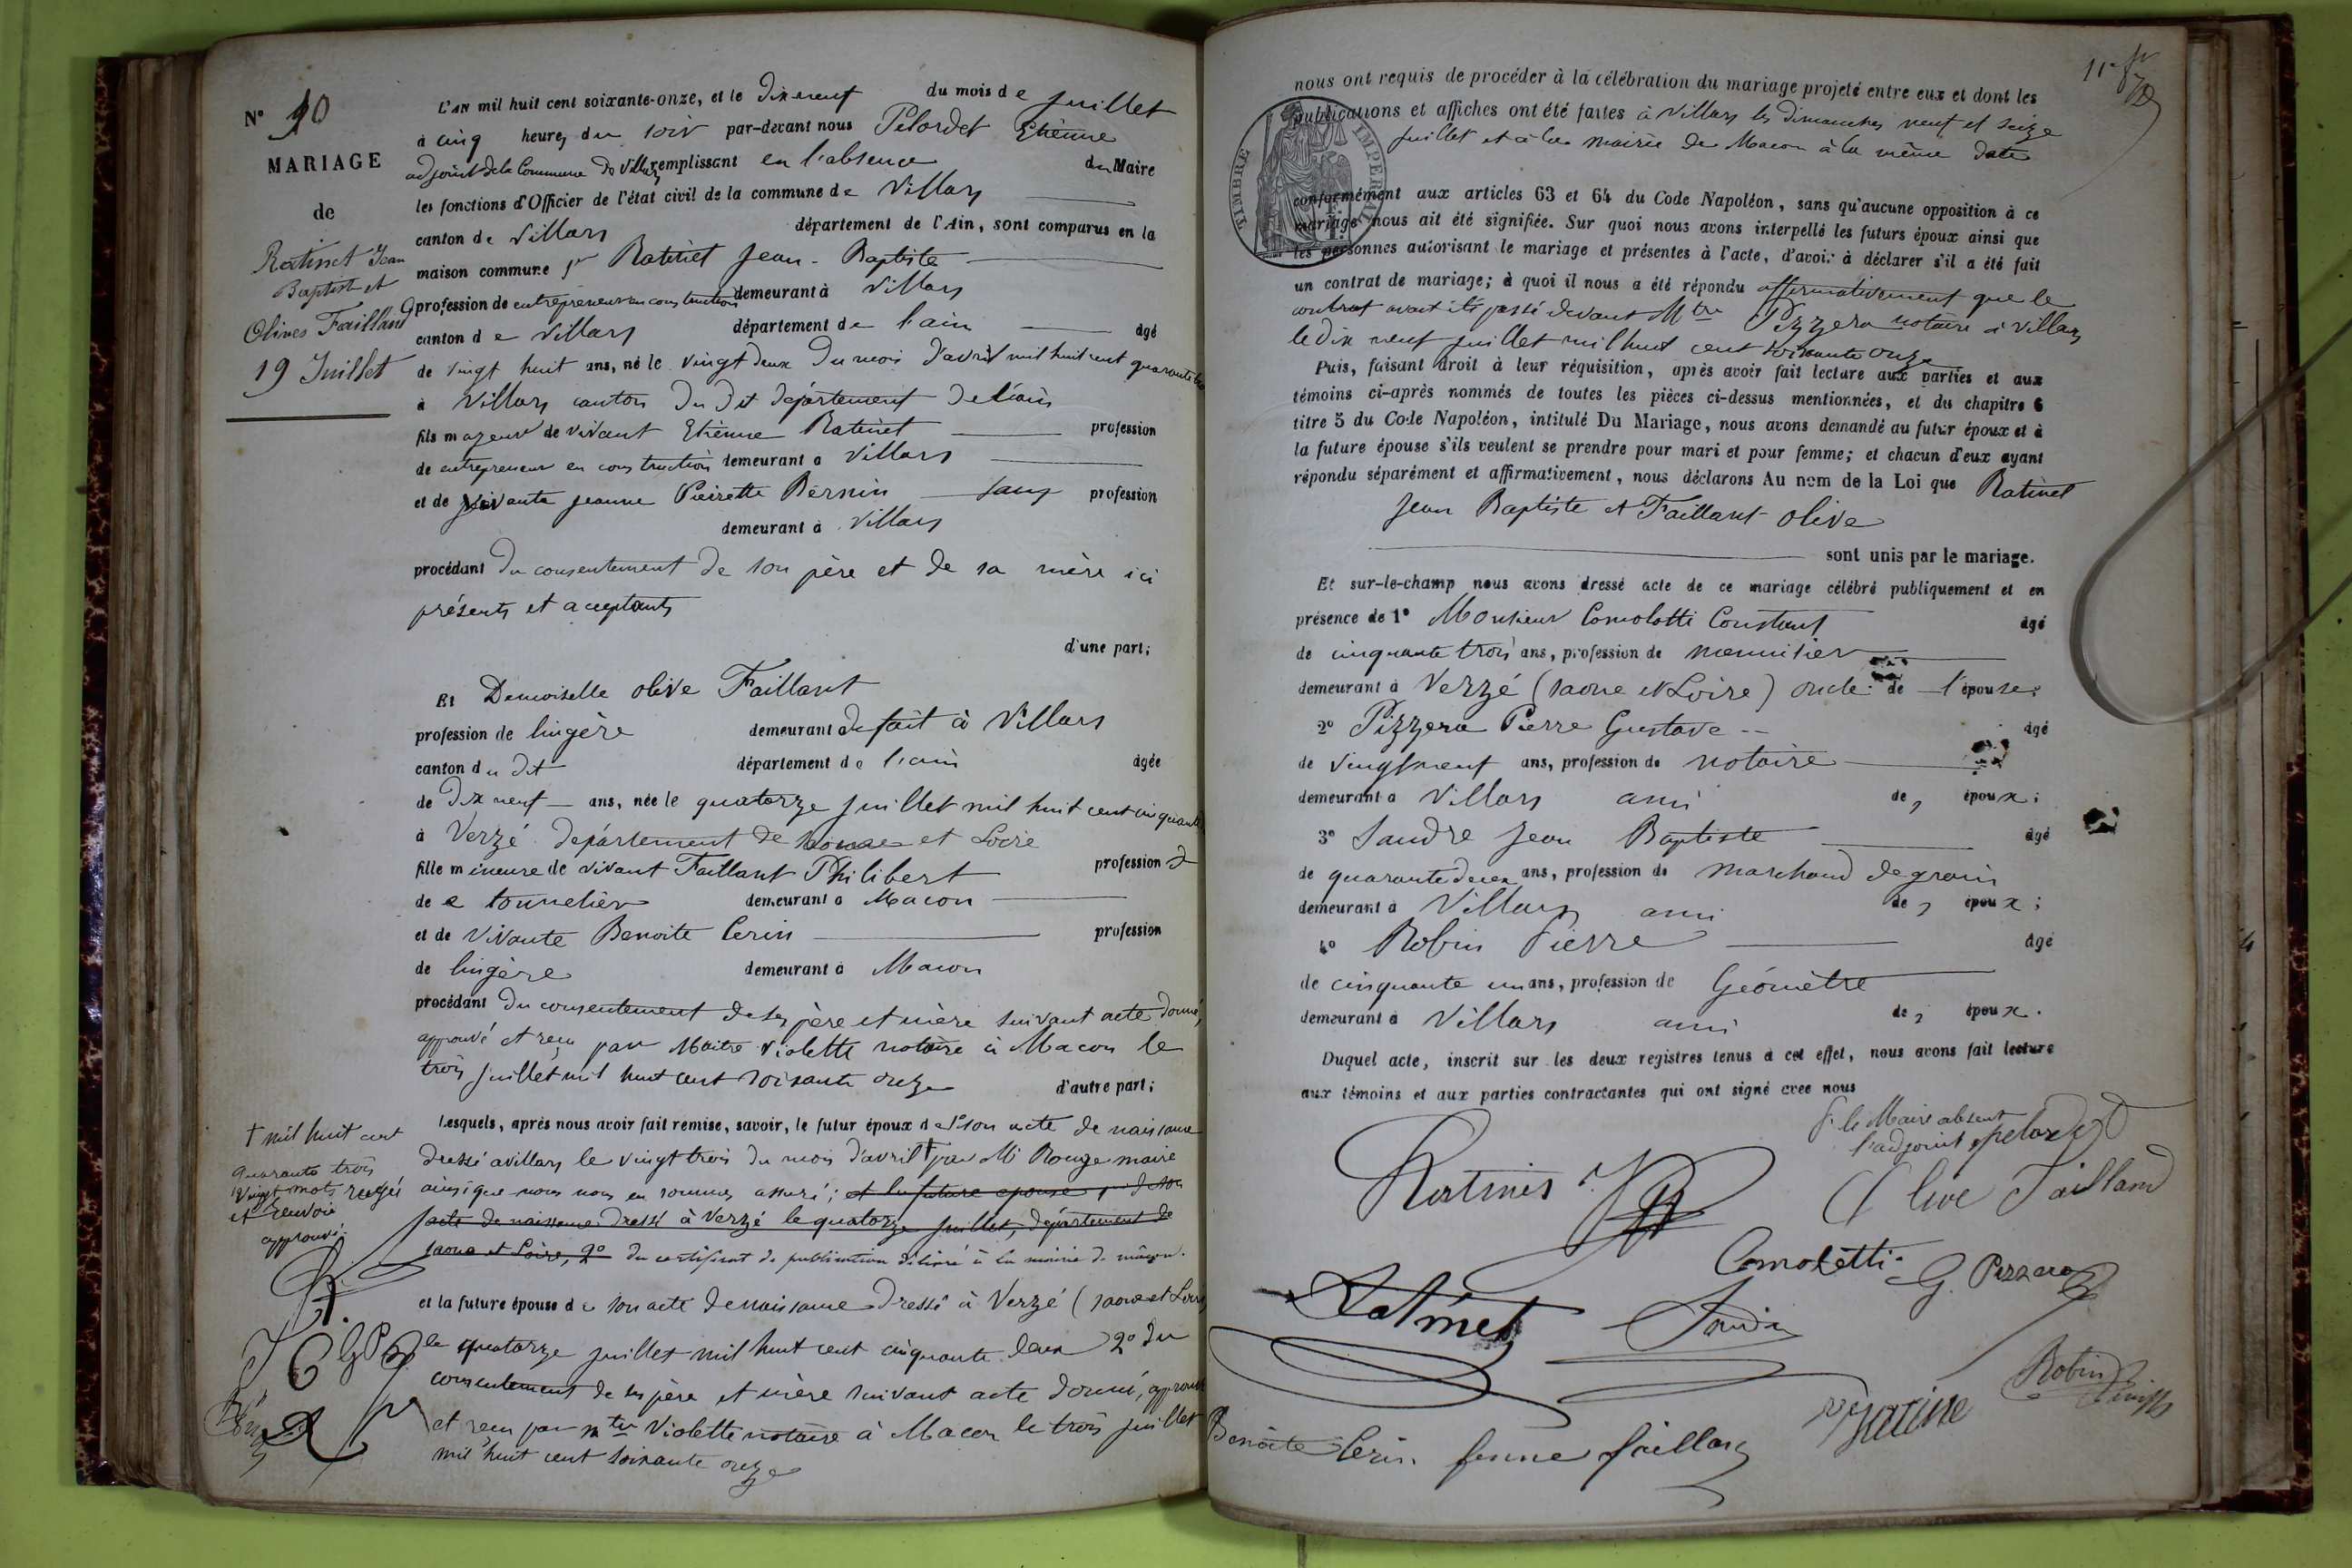 N° 10
MARIAGE
de
Ratinet Jean
Baptiste et
Olives Faillant
19 Juillet
L'AN mil huit cent soixante-onze, et le dix neuf du mois de juillet
à cinq heures du soir par-devant nous Pelordet Etienne
adjoint de la Commune de Villars remplissant en l'absence du Maire
les fonctions d'Officier de l'état civil de la commune de Villars
canton de Villars département de l'Ain, sont comparus en la
maison commune Ratinet Jean-Baptiste
profession de entrepreneur en construction demeurant à Villars
canton de Villars département de l'ain âgé
de vingt huit ans, né le vingt deux du mois d'avril mil huit cent quarante
à Villars canton du dit département de l'ain
fils majeur de vivant Etienne Ratinet profession
de entrepreneur en construction demeurant à Villars
et de vivante Jeanne Pierrette Bernin sans profession
demeurant à Villars
procédant du consentement de son père et de sa mère ici
présents et aceptants
d'une part;
Et Demoiselle olive Faillant
profession de lingère demeurant de fait à Villars
canton du dit département de l'ain âgée
de dix neuf ans, née le quatorze juillet mil huit cent cinquante
à Verzé département de saone et Loire
fille mineure de vivant Faillant Philibert profession d
de e tonnelier demeurant à Macon
et de vivante Benoite Cerin profession
de lingère demeurant à Macon
procédant du consentement de ses père et mère suivant acte donné,
approuvé et reçu par Maitre Violette notaire à Macon le
trois juillet mil huit cent soixante onze d'autre part;
Lesquels, après nous avoir fait remise, savoir, le futur époux de 1° son acte de naissance
dressé a villars le vingt trois du mois d'avril † par Mr Rouge maire
ainsi que nous nous en sommes assuré; et la future epouse 1° de son
acte de naissance dressé à Verzé le quatorze juillet, département de
saone et Loire, 2° du certificat de publication délivré à la mairie de mâcon.
† mil huit cent
quarante trois
Vingt mots rayés
et renvoi
approuvé.
et la future épouse de son acte de naissance dressé à Verzé (saone et Loire
le quatorze juillet mil huit cent cinquante deux 2° du
consentement de ses père et mère suivant acte donné, approuvé
et reçu par Mtre Violette notaire à Macon le trois juillet
mil huit cent soixante onze
nous ont requis de procéder à la célébration du mariage projeté entre eux et dont les
publications et affiches ont été faites à Villars les dimanches neuf et seize
juillet et à la mairie de Macon à la même date
TIMBRE IMPERIAL
conformément aux articles 63 et 64 du Code Napoléon, sans qu'aucune opposition à ce
mariage nous ait été signifiée. Sur quoi nous avons interpellé les futurs époux ainsi que
les personnes autorisant le mariage et présentes à l'acte, d'avoir à déclarer s'il a été fait
un contrat de mariage; à quoi il nous a été répondu affirmativement que le
contrat avait été passé devant Mtre Pizzera notaire à Villars
le dix neuf juillet mil huit cent soixante onze
Puis, faisant droit à leur réquisition, après avoir fait lecture aux parties et aux
témoins ci-après nommés de toutes les pièces ci-dessus mentionnées, et du chapitre 6
titre 5 du Code Napoléon, intitulé Du Mariage, nous avons demandé au futur époux et à
la future épouse s'ils veulent se prendre pour mari et pour femme; et chacun d'eux ayant
répondu séparément et affirmativement, nous déclarons Au nom de la Loi que Ratinet
Jean Baptiste et Faillant olive
sont unis par le mariage.
Et sur-le-champ nous avons dressé acte de ce mariage célébré publiquement et en
présence de 1° Monsieur Comolotti Constant âgé
de cinquante trois ans, profession de menuisier
demeurant à Verzé (saone et Loire) oncle de l'épouse;
2° Pizzera Pierre Gustave âgé
de vingt neuf ans, profession de notaire
demeurant à Villars ami des époux;
3° Sandre Jean Baptiste âgé
de quarante deux ans, profession de marchand de grain
demeurant à Villars ami des époux;
4° Robin Pierre âgé
de cinquante un ans, profession de Géomètre
demeurant à Villars ami des époux.
Duquel acte, inscrit sur les deux registres tenus à cet effet, nous avons fait lecture
aux témoins et aux parties contractantes qui ont signé avec nous
p. le Maire absent
l'adjoint pelordet
Ratinet
Olive Failland
Comoletti
G. Pizzera
Ratinet
Robin
Benoite Cerin femme faillant